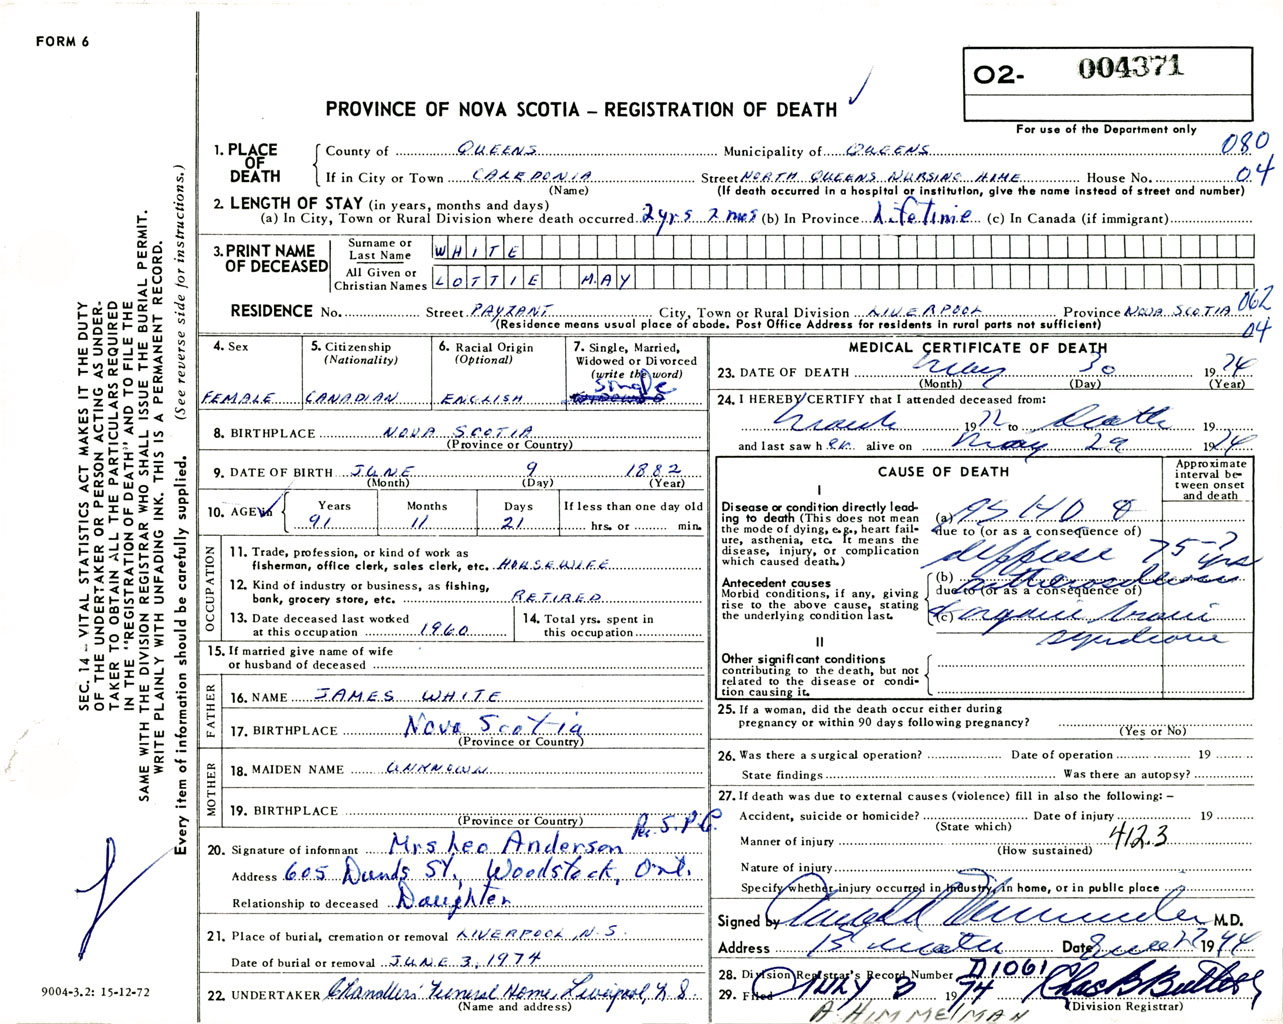 FORM 6
O2- 004371
PROVINCE OF NOVA SCOTIA – REGISTRATION OF DEATH
For use of the Department only
1. PLACE OF DEATH
County of QUEENS Municipality of QUEENS 080
If in City or Town CALEDONIA Street NORTH QUEENS NURSING HOME House No. 04
(Name) (If death occurred in a hospital or institution, give the name instead of street and number)
2. LENGTH OF STAY (in years, months and days)
(a) In City, Town or Rural Division where death occurred 2yrs 2mos (b) In Province Lifetime (c) In Canada (if immigrant)
3. PRINT NAME OF DECEASED
Surname or Last Name WHITE
All Given or Christian Names LOTTIE MAY
RESIDENCE No. Street PAYZANT City, Town or Rural Division LIVERPOOL Province NOVA SCOTIA 062
(Residence means usual place of abode. Post Office Address for residents in rural parts not sufficient) 04
4. Sex
FEMALE
5. Citizenship
(Nationality)
CANADIAN
6. Racial Origin
(Optional)
ENGLISH
7. Single, Married,
Widowed or Divorced
(write the word)
Single
8. BIRTHPLACE NOVA SCOTIA
(Province or Country)
9. DATE OF BIRTH JUNE 9 1882
(Month) (Day) (Year)
10. AGE in
Years Months Days If less than one day old
91 11 21 hrs. or min.
OCCUPATION
11. Trade, profession, or kind of work as
fisherman, office clerk, sales clerk, etc. HOUSEWIFE
12. Kind of industry or business, as fishing,
bank, grocery store, etc. RETIRED
13. Date deceased last worked
at this occupation 1960
14. Total yrs. spent in
this occupation
15. If married give name of wife
or husband of deceased
FATHER
16. NAME JAMES WHITE
17. BIRTHPLACE Nova Scotia
(Province or Country)
MOTHER
18. MAIDEN NAME UNKNOWN
19. BIRTHPLACE
(Province or Country)
Per. S.P.C.
20. Signature of informant Mrs Leo Anderson
Address 605 Dunds St., Woodstock, Ont.
Relationship to deceased Daughter
21. Place of burial, cremation or removal LIVERPOOL, N.S.
Date of burial or removal JUNE 3, 1974
22. UNDERTAKER Chandlers' Funeral Home, Liverpool, N.S.
(Name and address)
MEDICAL CERTIFICATE OF DEATH
23. DATE OF DEATH May 30 1974
(Month) (Day) (Year)
24. I HEREBY CERTIFY that I attended deceased from:
March 1972 to death 19
and last saw her alive on May 29 1974
CAUSE OF DEATH
Approximate interval between onset and death
I
Disease or condition directly leading to death (This does not mean
the mode of dying, e.g., heart failure, asthenia, etc. It means the
disease, injury, or complication
which caused death.)
(a) ASHD &
due to (or as a consequence of)
diffuse 75-? yrs
Antecedent causes
Morbid conditions, if any, giving
rise to the above cause, stating
the underlying condition last.
(b) arteriosclerosis
due to (or as a consequence of)
(c) organic brain
syndrome
II
Other significant conditions
contributing to the death, but not
related to the disease or condition causing it.
25. If a woman, did the death occur either during
pregnancy or within 90 days following pregnancy?
(Yes or No)
26. Was there a surgical operation? Date of operation 19
State findings Was there an autopsy?
27. If death was due to external causes (violence) fill in also the following: –
Accident, suicide or homicide? Date of injury 19
(State which)
Manner of injury 412.3
(How sustained)
Nature of injury
Specify whether injury occurred in industry, in home, or in public place
Signed by M.D.
Address Date June 27 1974
28. Division Registrar's Record Number D1061
29. Filed JULY 3 1974 Chas B Butler
(Division Registrar)
A HIMMELMAN
SEC. 14 – VITAL STATISTICS ACT MAKES IT THE DUTY
OF THE UNDERTAKER OR PERSON ACTING AS UNDER-
TAKER TO OBTAIN ALL THE PARTICULARS REQUIRED
IN THE "REGISTRATION OF DEATH" AND TO FILE THE
SAME WITH THE DIVISION REGISTRAR WHO SHALL ISSUE THE BURIAL PERMIT.
WRITE PLAINLY WITH UNFADING INK. THIS IS A PERMANENT RECORD.
Every item of information should be carefully supplied. (See reverse side for instructions.)
9004-3.2: 15-12-72